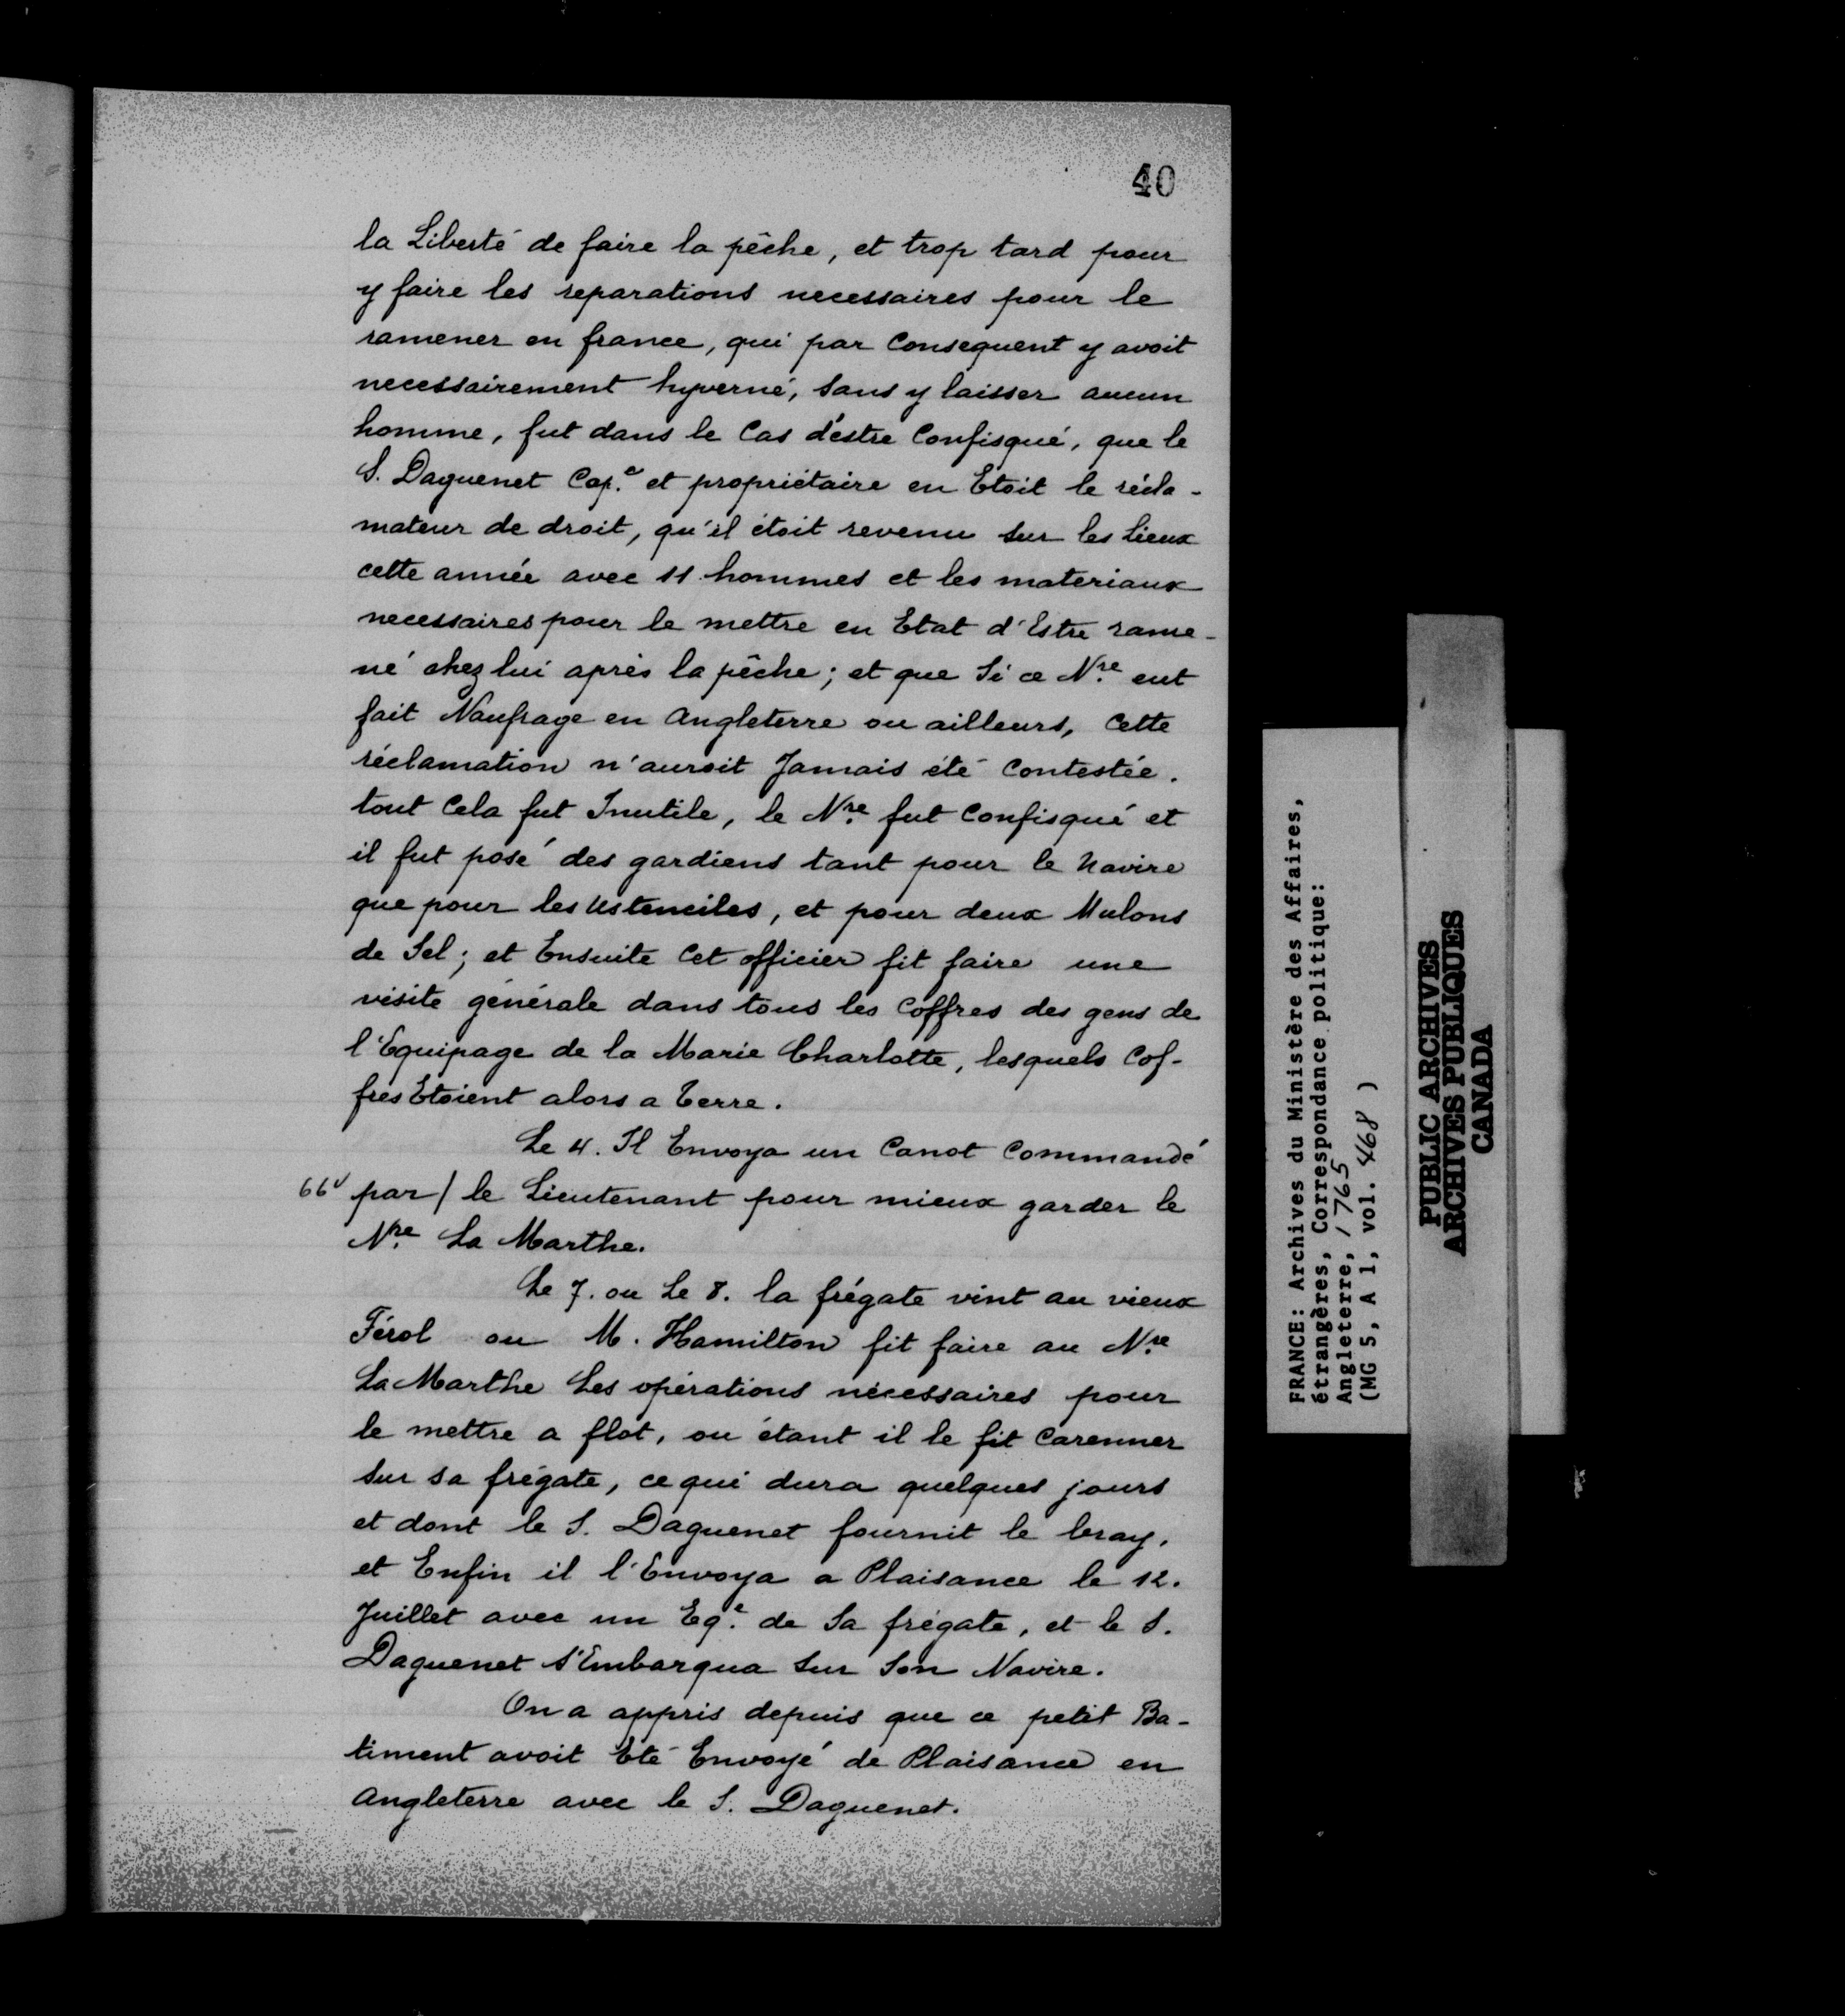 40
la Liberté de faire la pêche, et trop tard pour
y faire les reparations necessaires pour le
ramener en france, qui par Consequent y avoit
necessairement hyverné, sans y laisser aucun
homme, fut dans le Cas d'éstre Confisqué, que le
S. Daguenet Cap.e et propriétaire en Etoit le récla-
mateur de droit, qu'il étoit revenu sur les Lieux
cette année avec 11 hommes et les materiaux
necessaires pour le mettre en Etat d'Estre rame-
né chez lui après la pêche; et que Si ce N.re eut
fait Naufrage en Angleterre ou ailleurs, Cette
réclamation n'auroit Jamais été Contestée.
tout Cela fut Inutile, le N.re fut Confisqué et
il fut posé des gardiens tant pour le Navire
que pour les Ustenciles, et pour deux Mulons
de Sel; et Ensuite Cet officier fit faire une
visite générale dans tous les Coffres des gens de
l'Equipage de la Marie Charlotte, lesquels Cof-
fres Etoient alors a Terre.
Le 4. Il Envoya un Canot Commandé
66v par / le Lieutenant pour mieux garder le
N.re La Marthe.
Le 7. ou Le 8. la frégate vint au vieux
Férol ou M. Hamilton fit faire au N.re
La Marthe Les opérations nécessaires pour
le mettre a flot, ou étant il le fit Carenner
sur sa frégate, ce qui dura quelques jours
et dont le S. Daguenet fournit le bray,
et Enfin il l'Envoya a Plaisance le 12.
Juillet avec un Eq.e de Sa frégate, et le S.
Daguenet s'Embarqua sur Son Navire.
On a appris depuis que ce petit Ba-
timent avoit Eté Envoyé de Plaisance en
Angleterre avec le S. Daguenet.
FRANCE: Archives du Ministère des Affaires,
étrangères, Correspondance politique:
Angleterre, 1765
(MG 5, A 1, vol. 468 )
PUBLIC ARCHIVES
ARCHIVES PUBLIQUES
CANADA